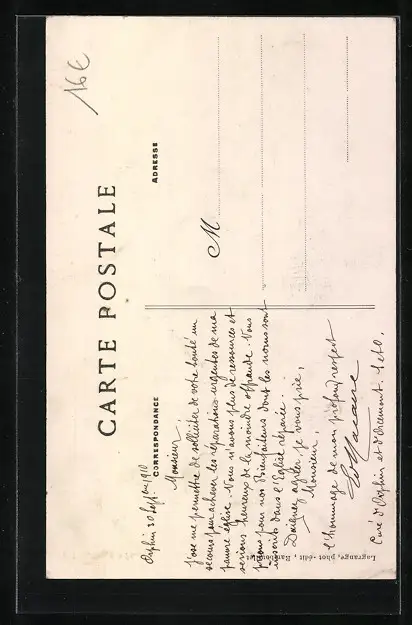 16€
CARTE POSTALE
CORRESPONDANCE
ADRESSE
M
Orphin 30 Septem 1910
Monsieur,
J'ose me permettre de solliciter de votre bonté un
secours pour achever les réparations urgentes de ma
pauvre église. Nous n'avons plus de ressources et
serions heureux de la moindre offrande. Nous
prions pour nos Bienfaiteurs dont les noms sont
inscrits dans l'Eglise réparée.
Daignez agréer je vous prie,
Monsieur,
l'hommage de mon profond respect
Macaire
Curé d'Orphin et d'Orcemont. S et O.
Lagrange, phot.-édit., Rambouillet